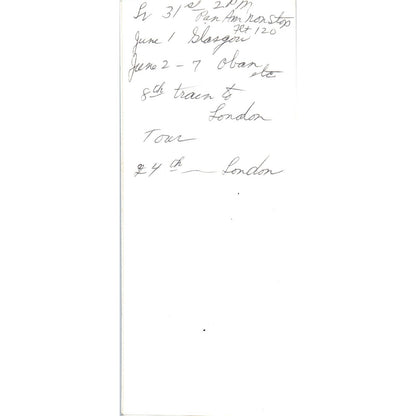 Lv 31st 2PM
Pan Am non stop
Flt 120
June 1 Glasgow
June 2 - 7 Oban
etc
8th train to
London
Tour
24th — London